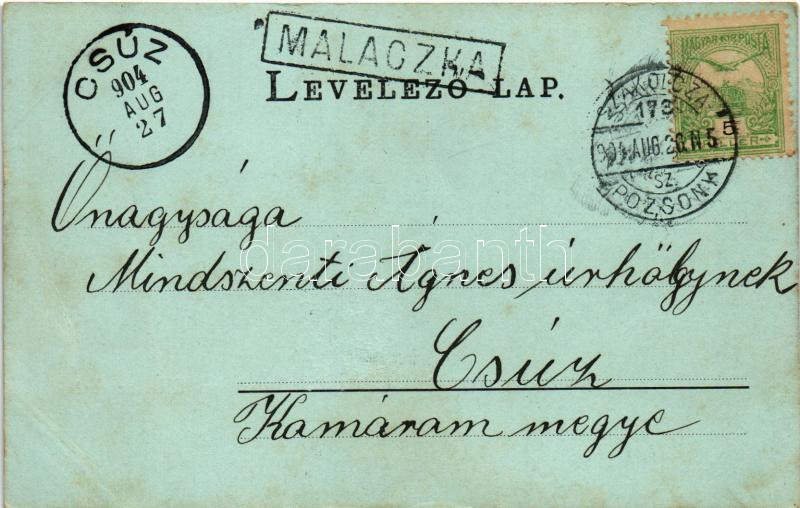 MALACZKA
CSÚZ
904
AUG
27
LEVELEZŐ LAP.
MAGYAR KIR. POSTA
SZAKOLCZA
904 AUG. 26. N 5
SZ.
POZSONY
5
Őnagysága
Mindszenti Ágnes úrhölgynek
darabanth
Csúz
Kamáram megye